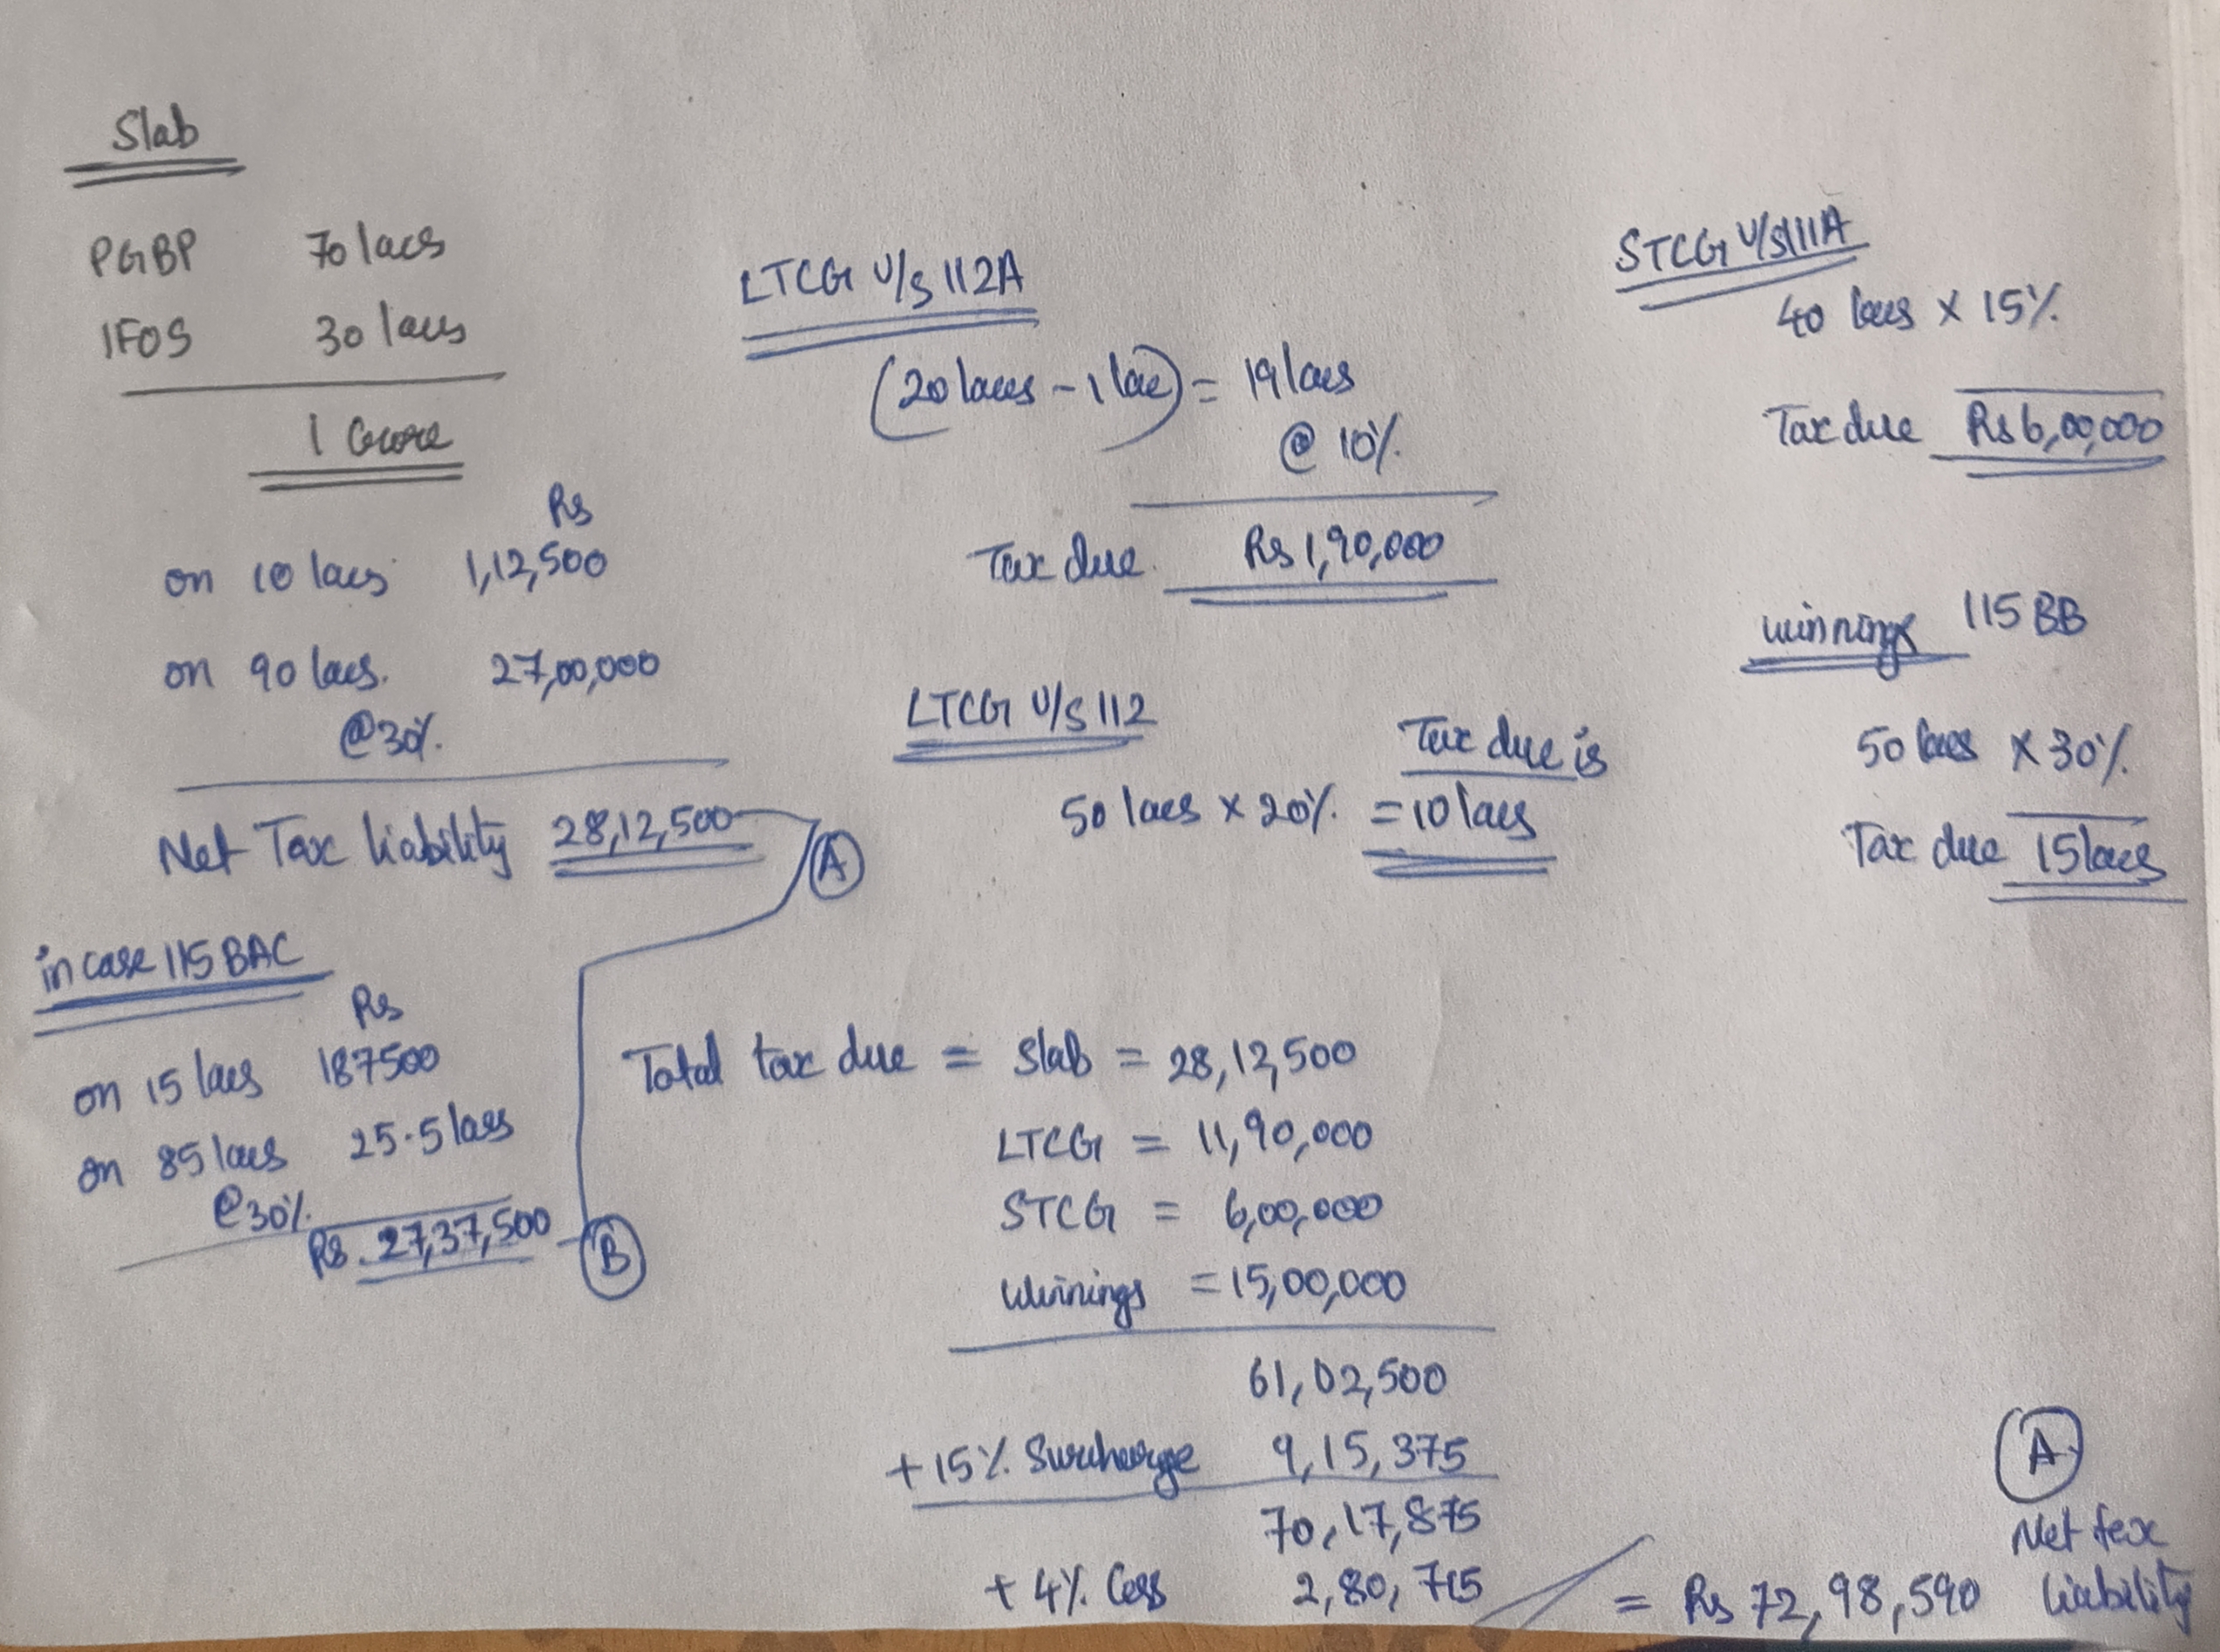 Slab
PGBP 70 lacs
IFOS 30 lacs
1 Crore
Rs
on 10 lacs 1,12,500
on 90 lacs. 27,00,000
@30%.
Net Tax liability 28,12,500
A
in case 115 BAC
Rs
on 15 lacs 187500
on 85 lacs 25.5 lacs
@30%.
Rs. 27,37,500
B
LTCG U/S 112A
(20 lacs - 1 lac) = 19 lacs
@ 10%.
Tax due. Rs 1,90,000
LTCG U/S 112
Tax due is
50 lacs x 20%. = 10 lacs
STCG U/S 111A
40 lacs x 15%.
Tax due Rs 6,00,000
winnings 115 BB
50 lacs x 30%.
Tax due 15 lacs
Total tax due = Slab = 28,12,500
LTCG = 11,90,000
STCG = 6,00,000
Winnings = 15,00,000
61,02,500
+ 15%. Surcharge 9,15,375
70,17,875
+ 4%. Cess 2,80,715
A
Net tax
= Rs 72,98,590 liability